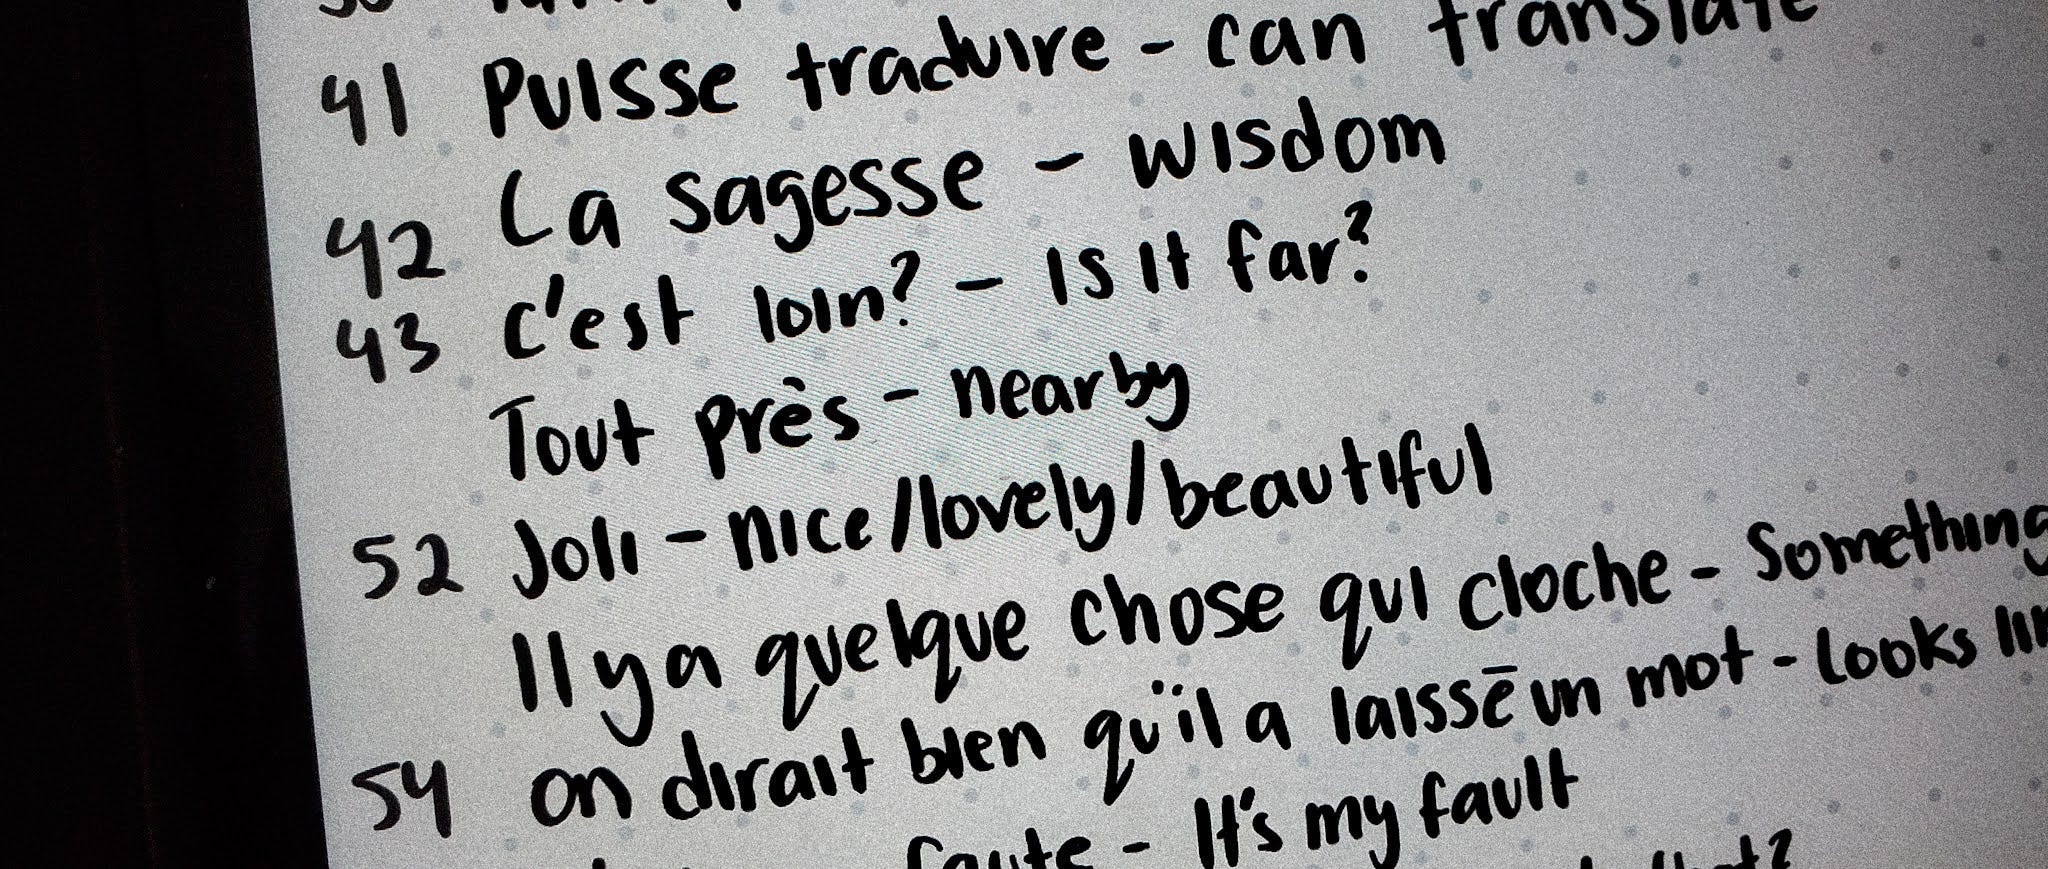 41 Puisse traduire - can translate
42 La sagesse - wisdom
43 c'est loin? - Is it far?
Tout près - nearby
52 Joli - nice/lovely/beautiful
Il y a quelque chose qui cloche - Something
54 on dirait bien qu'il a laissé un mot - Looks
faute - It's my fault